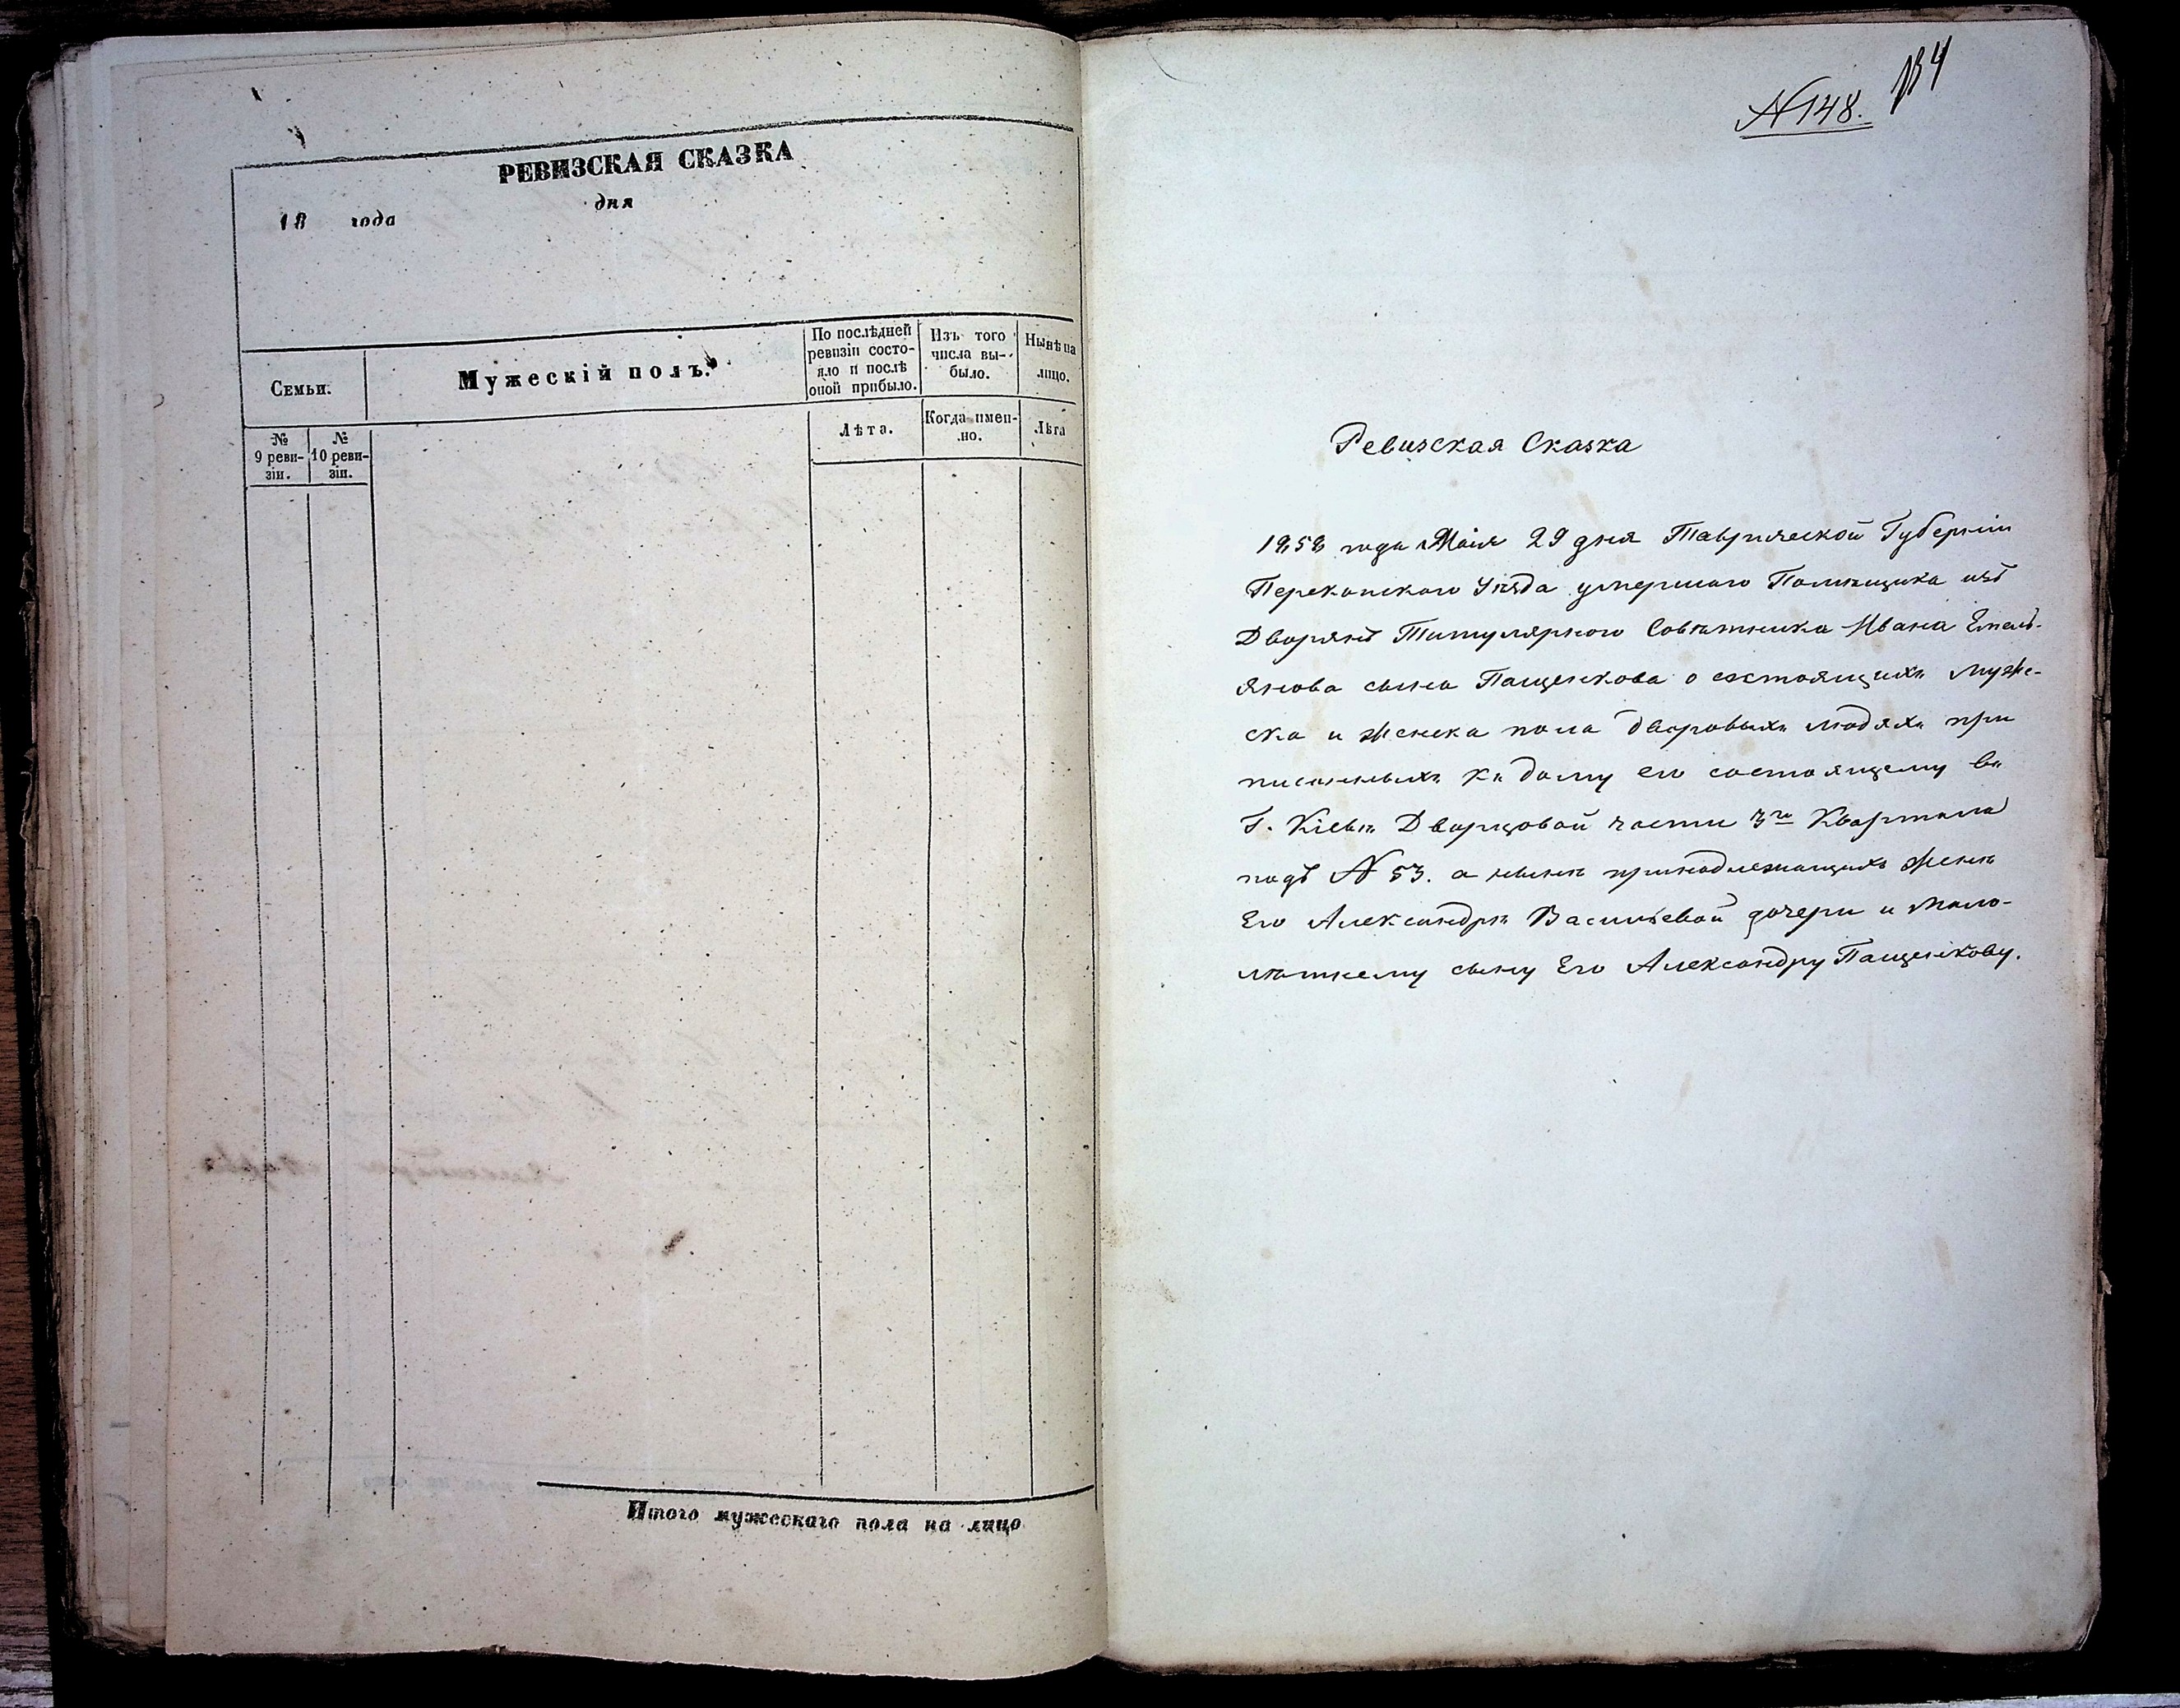 РЕВИЗСКАЯ СКАЗКА
дня
18 года
Семьи.
Мужескій полъ.
По послѣдней
ревизіи состо-
яло и послѣ
оной прибыло.
Изъ того
числа вы-
было.
Нынѣ на
лицо.
Лѣта.
Когда имен-
но.
Лѣта
№
9 реви-
зіи.
№
10 реви-
зіи.
Итого мужескаго пола на лицо
N 148.
Ревизская Сказка
1858 года Маія 29 дня Таврической Губерніи
Перекопского Уѣзда умершаго Помѣщика изъ
Дворянъ Титулярного Совѣтника Ивана Емель-
янова сына Пащенкова о состоящихъ муже-
ска и женска пола дворовыхъ людяхъ при
писанныхъ къ дому его состоящему въ
Г. Кіевѣ Дворцовой части 3го Квартала
подъ N 53. а нынѣ принадлежащихъ женѣ
Его Александрѣ Васильевой дочери и мало-
лѣтнему сыну Его Александру Пащенкову.